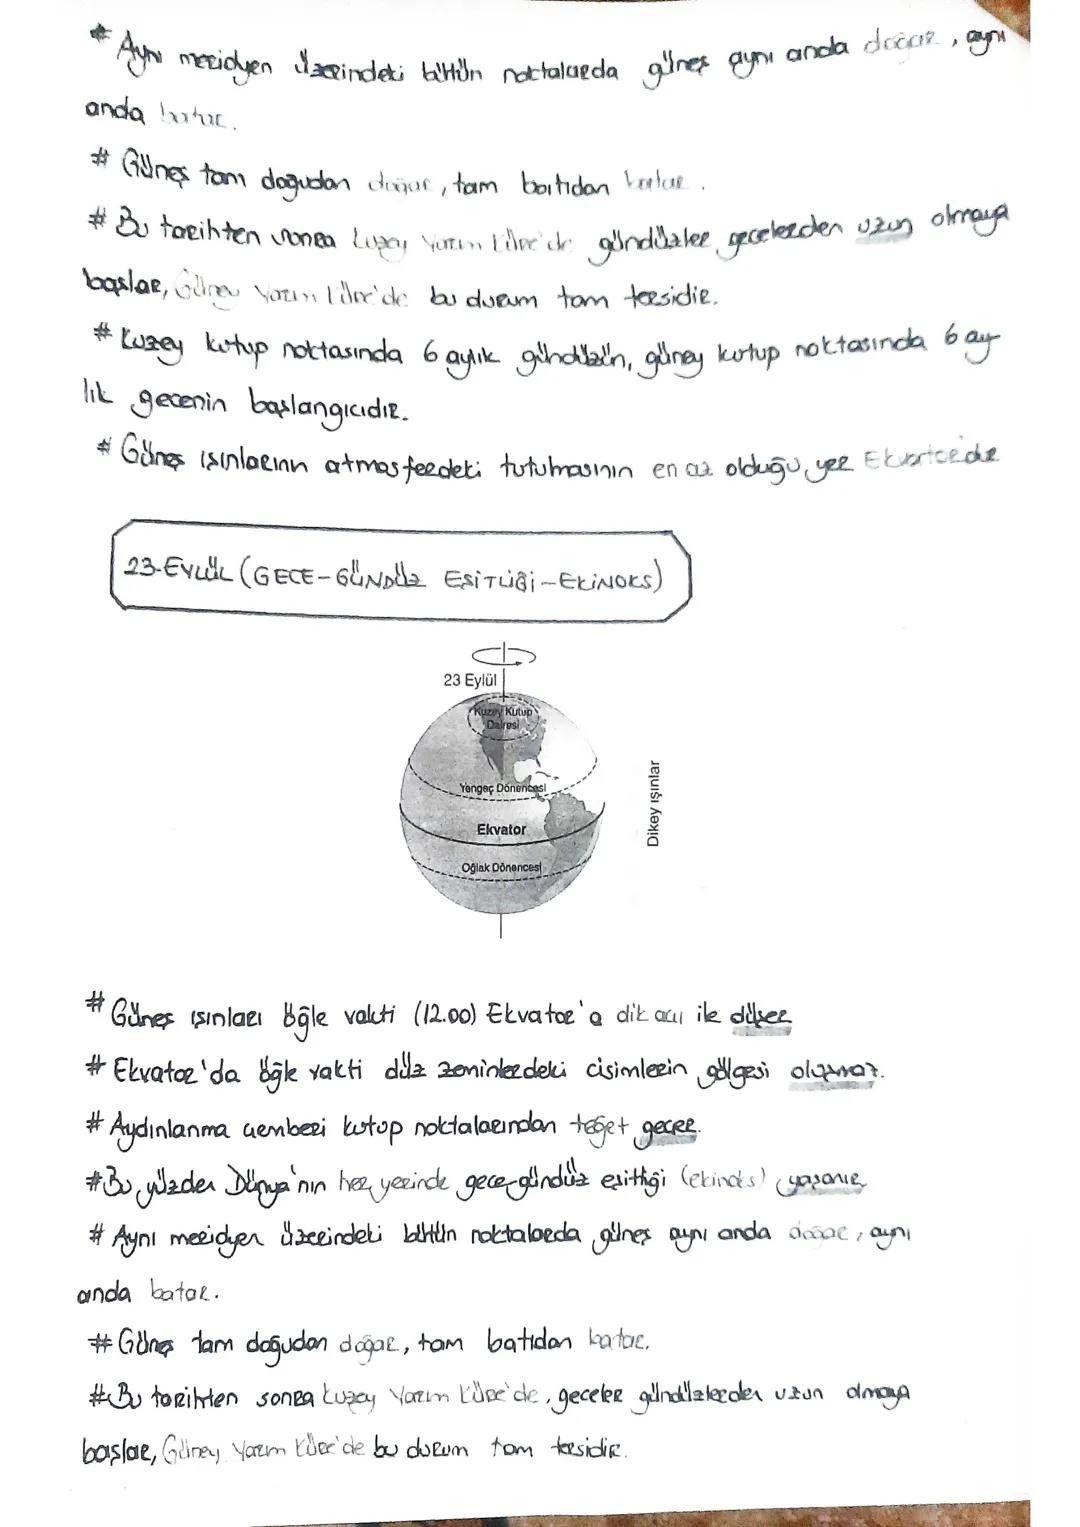 # Aynı meridyen üzerindeki bütün noktalarda güneş aynı anda doğar, aynı
anda batar.
# Güneş tam doğudan doğar, tam batıdan batar.
# Bu tarihten sonra Kuzey Yarım Küre'de gündüzler gecelerden uzun olmaya
başlar, Güney Yarım Küre'de bu durum tam tersidir.
# Kuzey kutup noktasında 6 aylık gündüzün, güney kutup noktasında 6 ay
lık gecenin başlangıcıdır.
# Güneş ışınlarının atmosferdeki tutulmasının en az olduğu yer Ekvator'dur
23-EYLÜL (GECE-GÜNDÜZ ESİTLİĞİ-EKİNOKS)
23 Eylül
Kuzey Kutup
Dairesi
Yengeç Dönencesi
Ekvator
Oğlak Dönencesi
Dikey ışınlar
# Güneş ışınları öğle vakti (12.00) Ekvator'a dik açı ile düşer
# Ekvator'da öğle vakti düz zeminlerdeki cisimlerin gölgesi oluşmaz.
# Aydınlanma çemberi kutup noktalarından teğet geçer.
# Bu yüzden Dünya'nın her yerinde gece-gündüz eşitliği (ekinoks) yaşanır
# Aynı meridyen üzerindeki bütün noktalarda güneş aynı anda doğar, aynı
anda batar.
# Güneş tam doğudan doğar, tam batıdan batar.
# Bu tarihten sonra Kuzey Yarım Küre'de, geceler gündüzlerden uzun olmaya
başlar, Güney Yarım Küre'de bu durum tam tersidir.